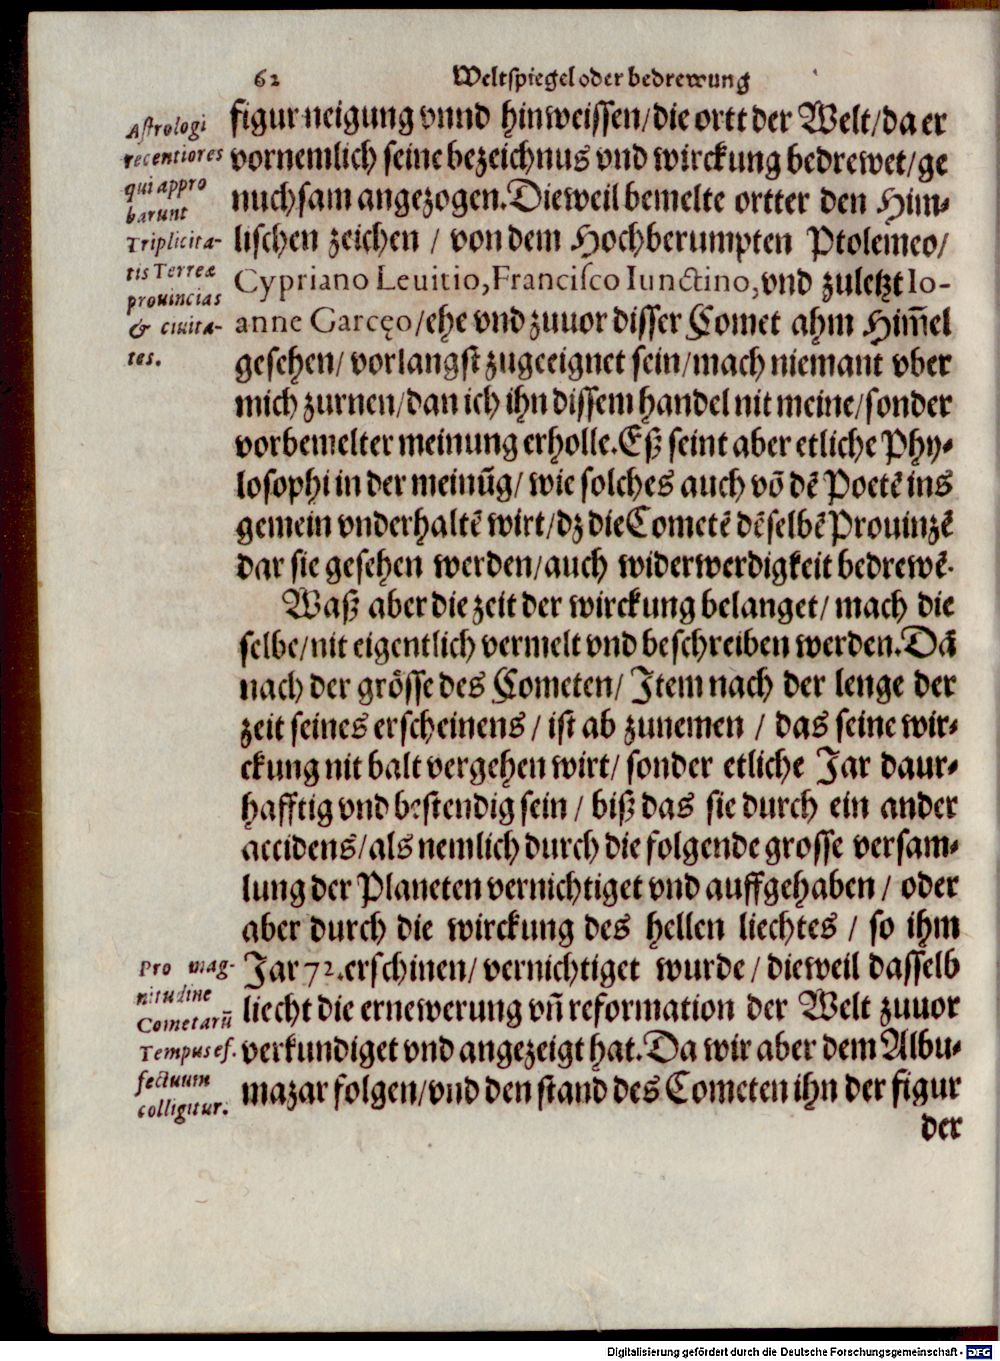 62 Weltspiegel oder bedrewung
figur neigung vnnd hinweissen/die ortt der Welt/da er
vornemlich seine bezeichnus vnd wirckung bedrewet/ge
nuchsam angezogen. Dieweil bemelte ortter den Him-
lischen zeichen / von dem Hochberumpten Ptolemeo/
Cypriano Leuitio, Francisco Iunctino, vnd zuletzt Io-
anne Garcęo/ehe vnd zuuor disser Comet ahm Him̃el
gesehen/ vorlangst zugeeignet sein/mach niemant vber
mich zurnen/dan ich ihn dissem handel nit meine/sonder
vorbemelter meinung erholle. Eß seint aber etliche Phy-
losophi in der meinũg/ wie solches auch võ dẽ Poetẽ ins
gemein vnderhaltẽ wirt/dz die Cometẽ dẽselbẽ Prouinzẽ
dar sie gesehen werden/auch widerwerdigkeit bedrewẽ.
Waß aber die zeit der wirckung belanget/ mach die
selbe/nit eigentlich vermelt vnd beschreiben werden. Dã
nach der grösse des Cometen/ Item nach der lenge der
zeit seines erscheinens / ist ab zunemen / das seine wir-
ckung nit balt vergehen wirt/ sonder etliche Jar daur-
hafftig vnd bestendig sein / biß das sie durch ein ander
accidens/als nemlich durch die folgende grosse versam-
lung der Planeten vernichtiget vnd auffgehaben / oder
aber durch die wirckung des hellen liechtes / so ihm
Jar 72. erschinen/ vernichtiget wurde / dieweil dasselb
liecht die ernewerung vñ reformation der Welt zuuor
verkundiget vnd angezeigt hat. Da wir aber dem Albu-
mazar folgen/vnd den stand des Cometen ihn der figur
der
Astrologi
recentiores
qui appro
barunt
Triplicita-
tis Terreæ
prouincias
& ciuita-
tes.
Pro mag-
nitudine
Cometarũ
Tempus ef-
fectuum
colligitur.
Digitalisierung gefördert durch die Deutsche Forschungsgemeinschaft - DFG